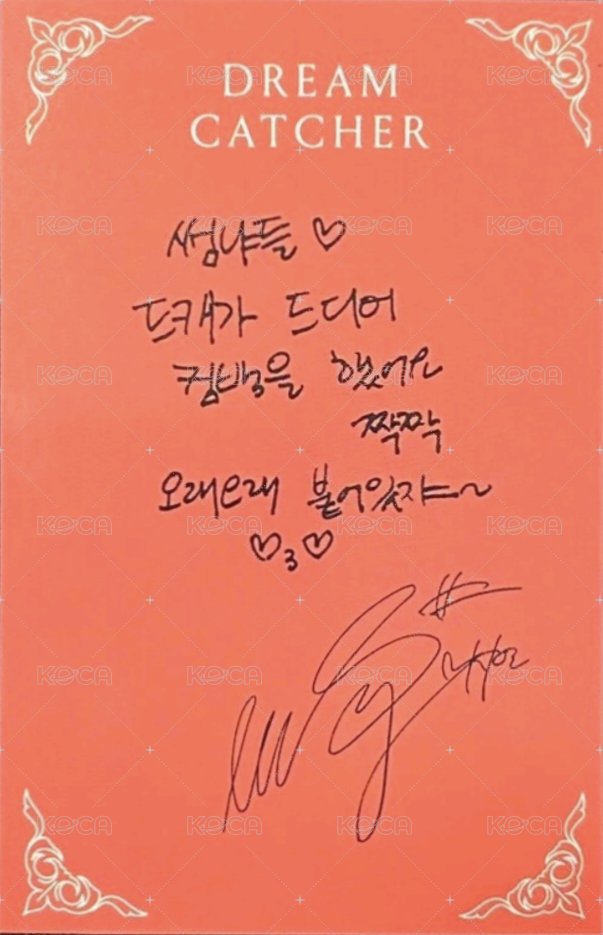 DREAM
CATCHER
썸냐들 ♡
드캐가 드디어
컴백을 했어요
짝짝
오래오래 붙어있쟈~
♡3♡
KOCA